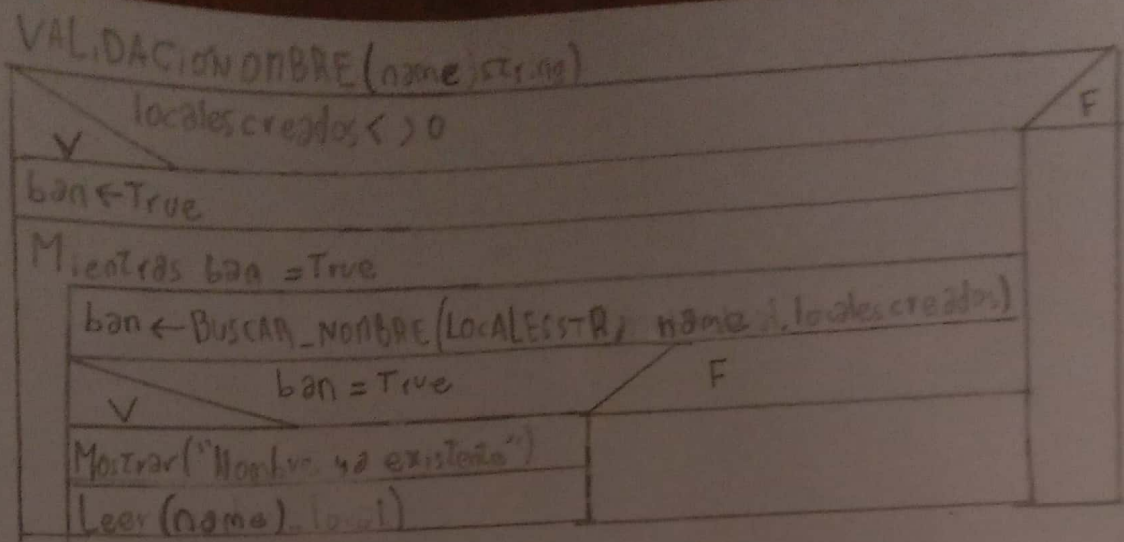 VALIDACIONOMBRE(name:string)
locales creados <> 0
V
F
ban ← True
Mientras ban = True
ban ← BUSCAR_NOMBRE(LOCALESSTR, name, locales creados)
ban = True
V
F
Mostrar("Nombre ya existente")
Leer(name)